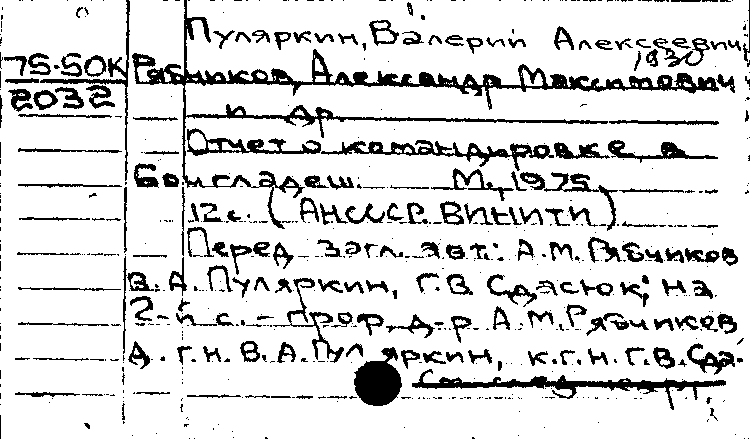 Пуляркин, Валерий Алексеевич,
1930
75-50К
2032
Рябчиков, Александр Максимович
и др.
Отчет о командировке в
Бангладеш. М., 1975.
12 с. (АН СССР. ВИНИТИ)
Перед загл. авт.: А.М. Рябчиков
В.А. Пуляркин, Г.В. Сдасюк; на
2-й с. - проф, д-р А.М. Рябчиков
д.г.н. В.А. Пуляркин, к.г.н. Г.В. Сда-
См след карт.